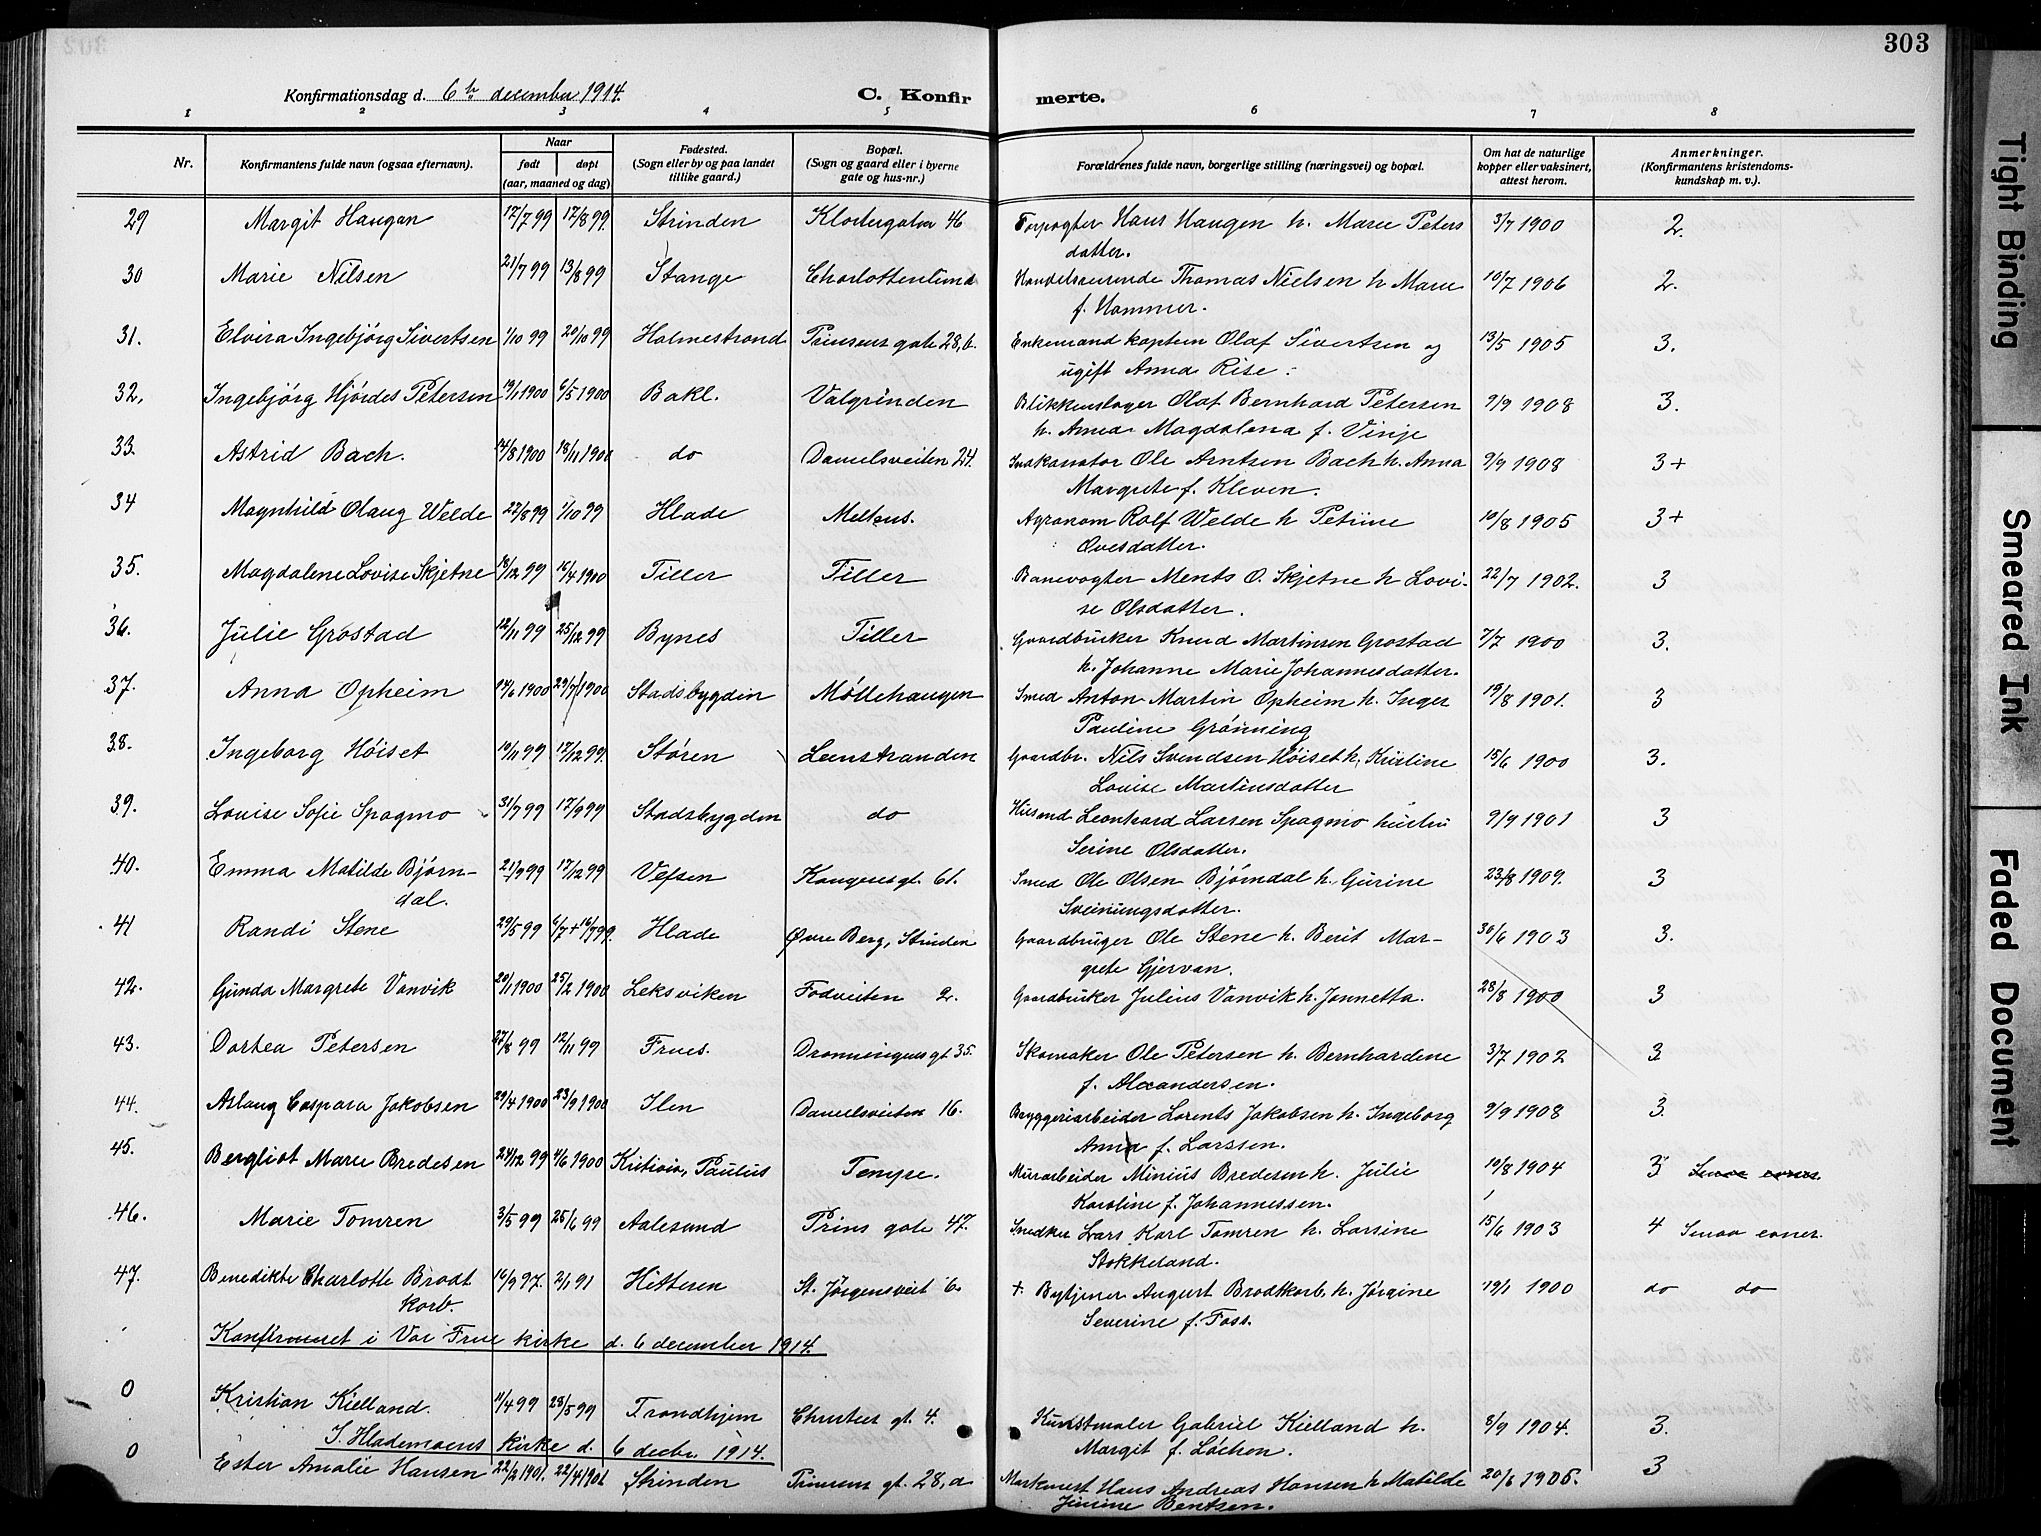 303
Konfirmationsdag d. 6te december 1914.
C. Konfirmerte.
1 2 3 4 5 6 7 8
Nr.
Konfirmantens fulde navn (ogsaa efternavn).
Naar
født døpt
(aar, maaned og dag)
Fødested.
(Sogn eller by og paa landet
tillike gaard.)
Bopæl.
(Sogn og gaard eller i byerne
gate og hus-nr.)
Forældrenes fulde navn, borgerlige stilling (næringsvei) og bopæl.
Om hat de naturlige
kopper eller vaksinert,
attest herom.
Anmerkninger.
(Konfirmantens kristendoms-
kundskap m. v.).
29 Margit Haugan 17/7 99 17/8 99. Strinden Klostergaten 46 Forpagter Hans Haugen h. Marie Peters 3/7 1900 2.
datter.
30 Marie Nilsen 21/7 99 13/8 99 Stange Charlottenlund Handelsreisende Thomas Nielsen h Marie 10/7 1906 2.
f. Hammer.
31. Elvira Ingebjørg Sivertsen 1/10 99 20/10 99 Holmestrand Prinsens gate 28,b. Enkemand kaptein Olaf Sivertsen og 13/5 1905 3.
ugift Anna Rise.
32. Ingebjørg Hjørdes Petersen 19/1 1900 6/5 1900 Bakl. Valgrinden Blikkenslager Olaf Bernhard Petersen 9/9 1908 3.
h. Anna Magdalena f. Vinje
33. Astrid Bach. 14/8 1900 18/11 1900 do Danielsveiten 24. Inkassator Ole Arntsen Bach h. Anna 9/9 1908 3+
Margrete f. Kleven.
34 Magnhild Olaug Welde 22/8 99 1/10 99 Hlade Melhus. Agronom Rolf Welde h Petrine 10/8 1905 3+
Ovesdatter.
35. Magdalene Lovise Skjetne 18/12 99 16/4 1900 Tiller Tiller Banevogter Ments O. Skjetne h Lovi- 22/7 1902. 3
se Olsdatter.
36. Julie Grostad 12/11 99 25/12 99 Bynes Tiller Gaardbruker Knud Martinsen Grostad 7/7 1900 3.
h. Johanne Marie Johannesdatter.
37. Anna Opheim 14/6 1900 29/7 1900 Stadsbygden Møllehaugen Smed Anton Martin Opheim h. Inger 19/8 1901. 3
Pauline Grønning
38. Ingeborg Høiset 10/11 99 17/12 99. Støren Leenstranden Gaardbr. Nils Svendsen Høiset h. Kristine 15/6 1900 3.
Louise Martinsdatter
39. Louise Sofie Spagmo 31/7 99 17/9 99 Stadsbygden do Husmd Leonhard Larsen Spagmo hustru 9/9 1901 3
Serine Olsdatter.
40. Emma Matilde Bjørn- 21/9 99 17/12 99 Vefsen Kongensgt. 61. Smed Ole Olsen Bjørndal h. Gurine 23/8 1909. 3
dal. Sveinungsdatter.
41 Randi Stene 29/5 99 6/7 + 16/7 99. Hlade Øvre Berg, Strinden Gaardbruger Ole Stene h. Berit Mar- 30/6 1903 3.
grete Gjervan.
42. Gunda Margrete Vanvik 20/1 1900 25/2 1900 Leksviken Fodveiten 2. Gaardbruker Julius Vanvik h. Jannetta. 28/8 1900 3
43. Dortea Petersen 27/8 99 12/11 99 Frues. Dronningensgt 35. Skomaker Ole Petersen h. Bernhardene 3/7 1902 3
f. Alexandersen.
44. Aslaug Caspara Jakobsen 29/4 1900 23/9 1900 Ilen Danielsveiten 16. Bryggeriarbeider Lorents Jakobsen h. Ingeborg 9/9 1908 3.
Anna f. Larssen.
45. Bergliot Marie Bredesen 24/12 99 4/6 1900 Kristiania, Paulus Tempe. Murarbeider Minius Bredesen h. Julie 10/8 1904 3 Smaa evner.
Karoline f. Johannessen.
46. Marie Tomren 3/5 99 25/6 99 Aalesund Prins gate 47. Snedker Lars Karl Tomren h. Larsine 15/6 1903 4 Smaa evner.
Stokkeland.
47. Benedikte Charlotte Brodt 16/9 97. 2/1 91 Hitteren St. Jørgensveit 6. + Bytjener August Brodtkorb h. Jørgine 19/1 1900 do do
korb. Severine f. Foss.
Konfirmeret i Vor Frue kirke d. 6 december 1914.
0 Kristian Kielland. 11/4 99 28/5 99 Trondhjem Christies gt. 4. Kunstmaler Gabriel Kielland h. 8/9 1904. 3.
Margit f. Løchen.
I. Hlademoens kirke d. 6 decbr. 1914.
0 Ester Amalie Hansen 22/2 1901. 22/4 1901 Strinden Prinsens gt. 28,a Hans Andreas Hansen h Matilde 20/6 1905. 3
Jinine Bentsen.
Tight Binding
Smeared Ink
Faded Document